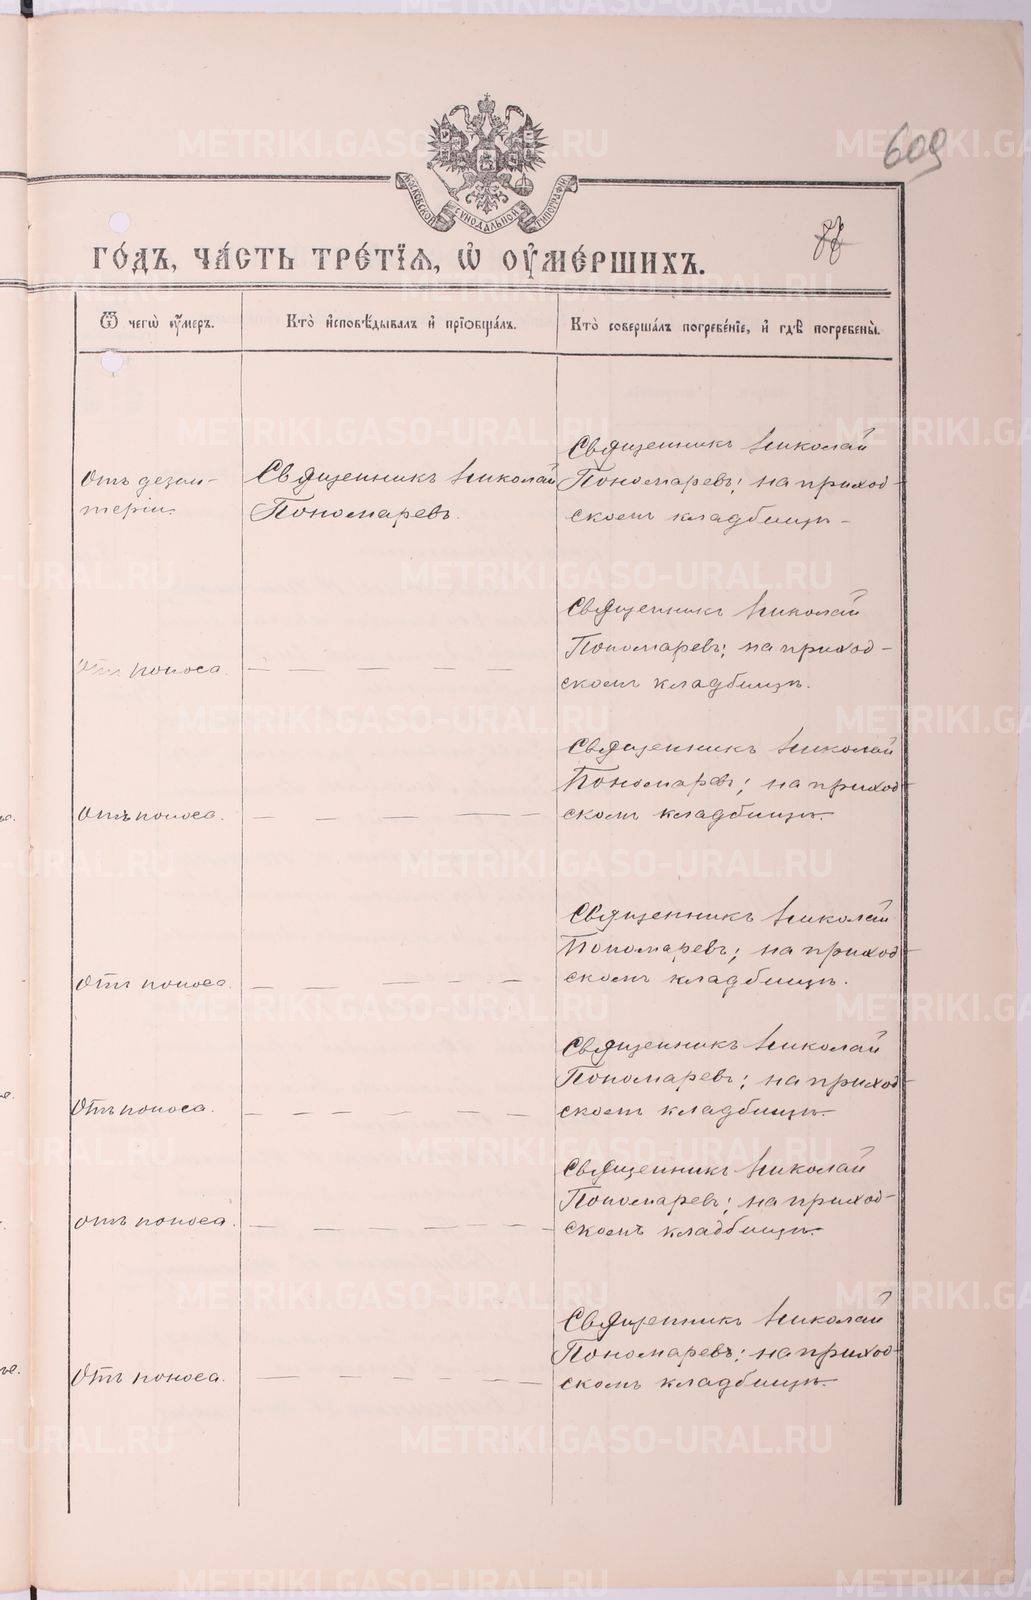 609
МОСКОВСКОЙ СѴНОДАЛЬНОЙ ТИПОГРАФІИ
ГО́ДЪ, ЧА́СТЬ ТРЕ́ТІѦ, Ѡ҆ ОУ҆МЕ́РШИХЪ.
Ѿ чегѡ̀ ᲂу҆́меръ.
Кто̀ и҆сповѣ́дывалъ и҆ прїѡбща́лъ.
Кто̀ соверша́лъ погребе́нїе, и҆ гдѣ̀ погребены̀.
Отъ дезен-
теріи.
Священникъ Николай
Пономаревъ.
Священникъ Николай
Пономаревъ; на приход-
скомъ кладбищѣ.
Отъ поноса.
Священникъ Николай
Пономаревъ; на приход-
скомъ кладбищѣ.
Отъ поноса.
Священникъ Николай
Пономаревъ; на приход-
скомъ кладбищѣ.
Отъ поноса.
Священникъ Николай
Пономаревъ; на приход-
скомъ кладбищѣ.
Отъ поноса.
Священникъ Николай
Пономаревъ; на приход-
скомъ кладбищѣ.
отъ поноса.
Священникъ Николай
Пономаревъ; на приход-
скомъ кладбищѣ.
Отъ поноса.
Священникъ Николай
Пономаревъ; на приход-
скомъ кладбищѣ.
METRIKI.GASO-URAL.RU